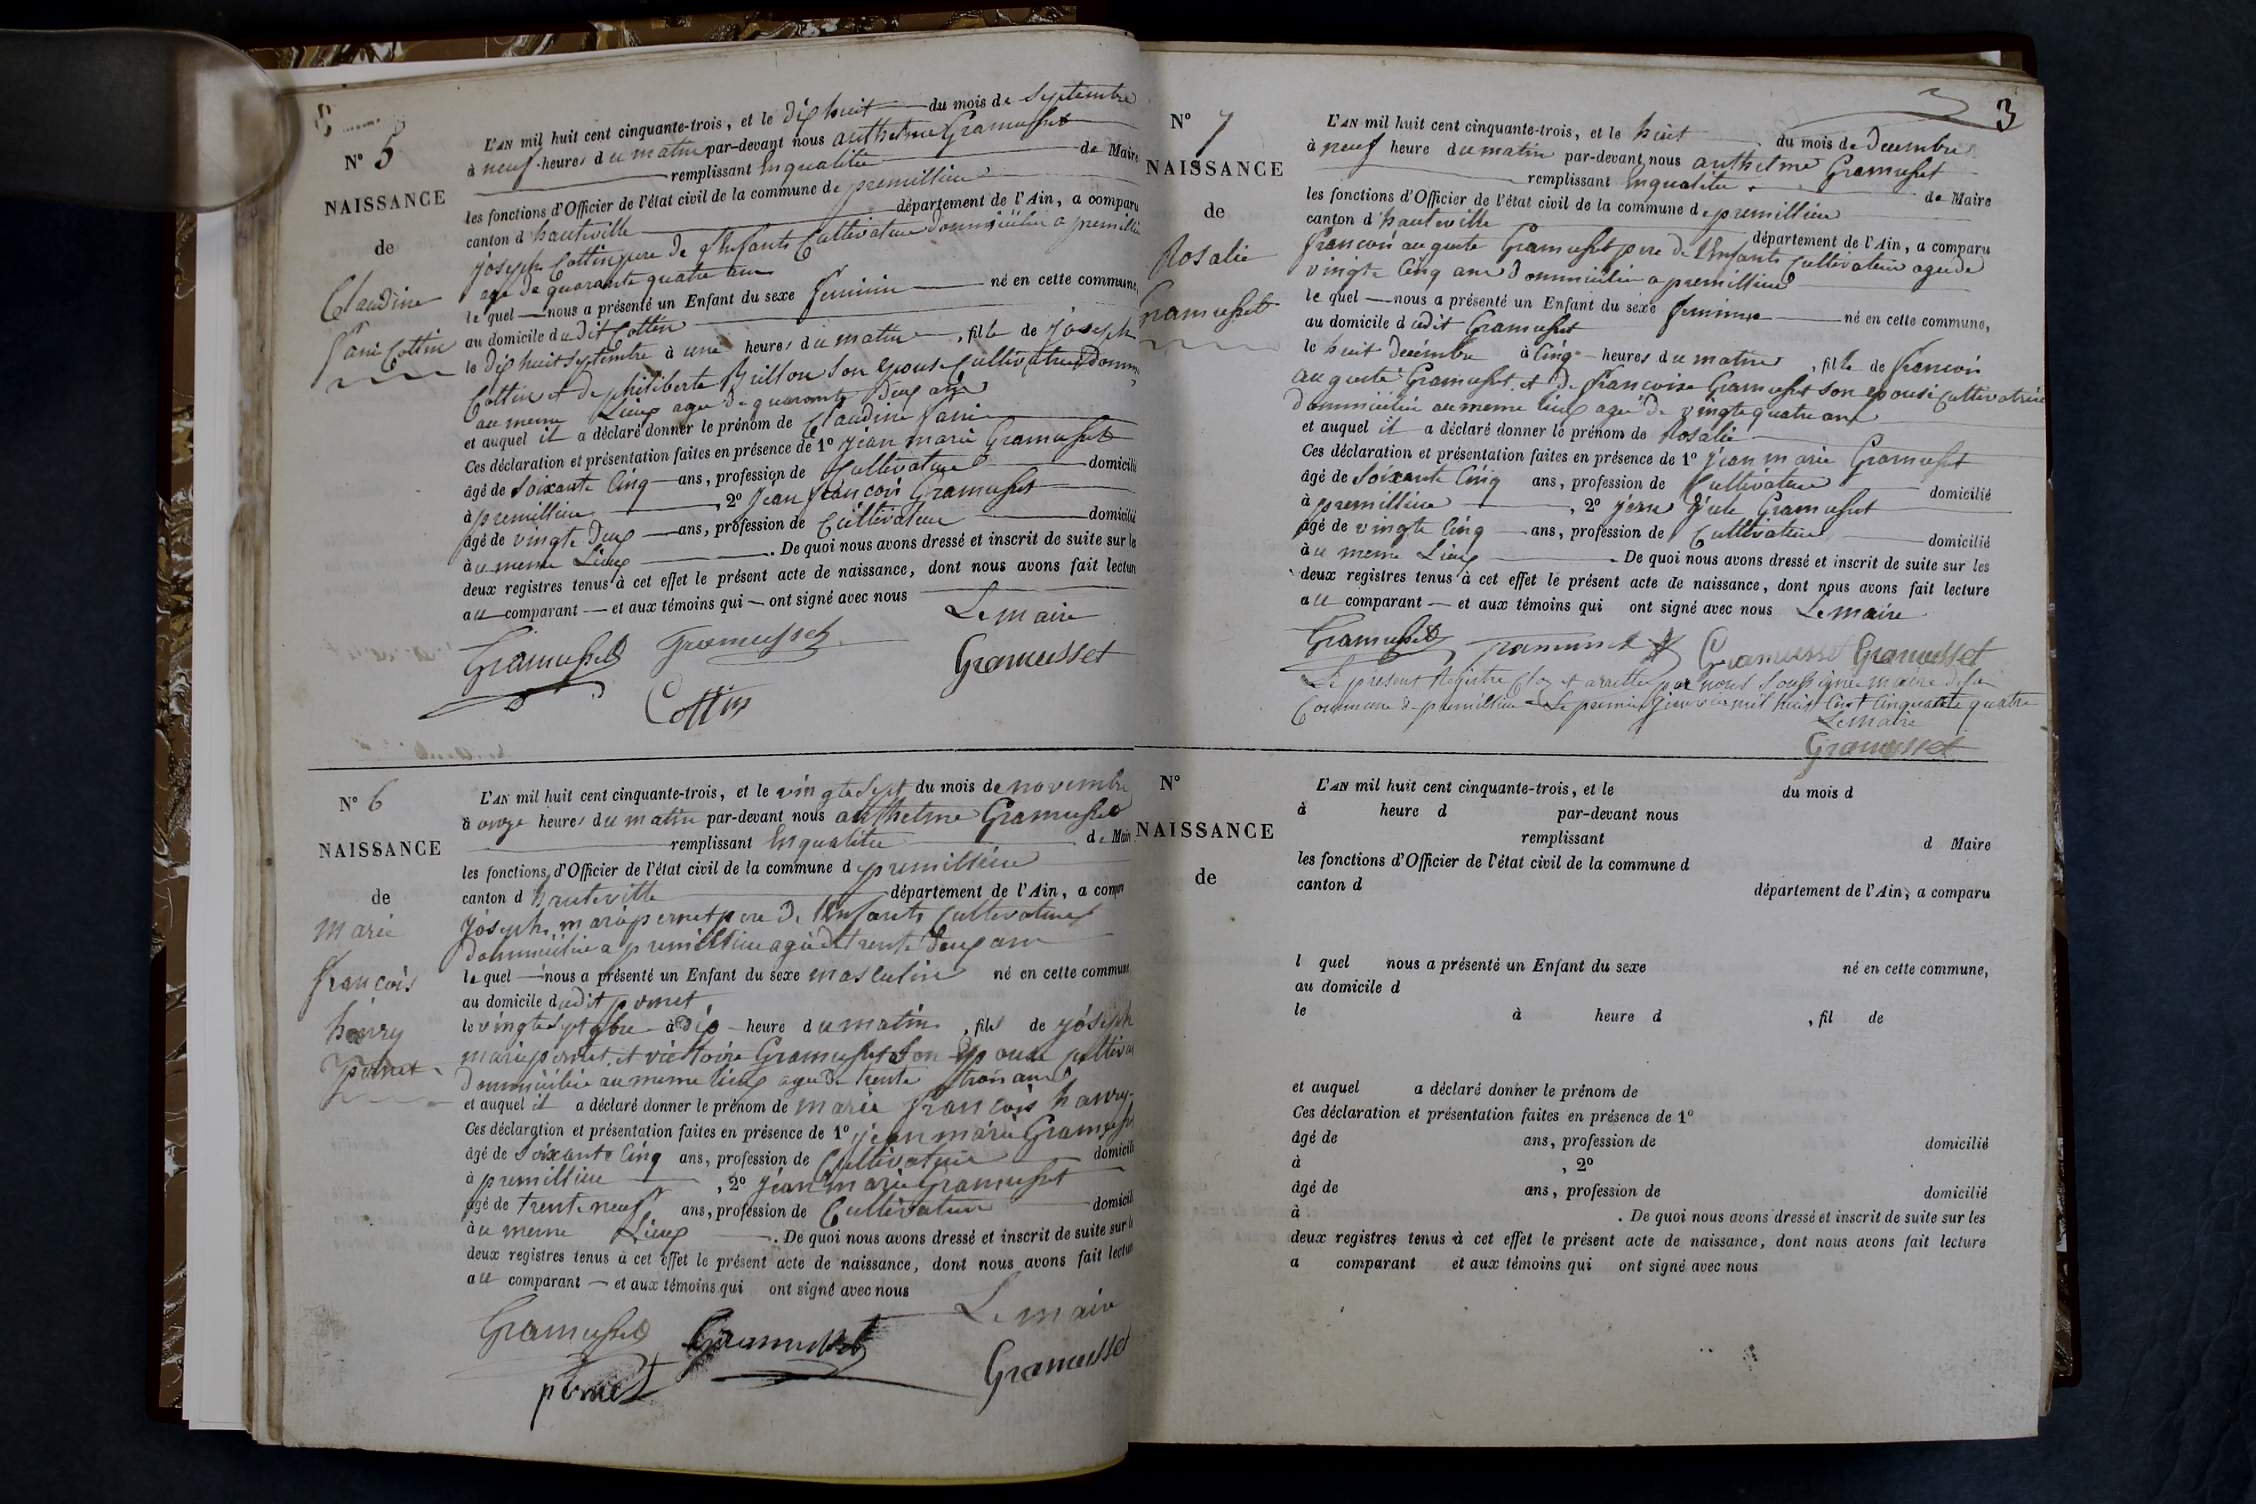 N° 5
NAISSANCE
de
Claudine
fani Cottin
L'AN mil huit cent cinquante-trois, et le dix huit du mois de septembre
à neuf heures du matin par-devant nous anthelme Gramusset
remplissant En qualitée de Maire
les fonctions d'Officier de l'état civil de la commune de premillieu
canton d'hauteville département de l'Ain, a comparu
joseph Cottin pere de Enfants Cultivateur Dommicilié a premillieu
age de quarante quatre ans
le quel nous a présenté un Enfant du sexe feminin né en cette commune,
au domicile dudit Cottin
le dix huit septembre à une heures du matin, fille de joseph
Cottin et de philiberte son epouse Cultivatrice
au meme Lieux agee de quarante deux ans
et auquel il a déclaré donner le prénom de Claudine fani
Ces déclaration et présentation faites en présence de 1° jean marie Gramusset
âgé de soixante cinq ans, profession de Cultivateur domicilié
à premillieu, 2° jean françois Gramusset
âgé de vingte deux ans, profession de Cultivateur domicilié
àu meme Lieux. De quoi nous avons dressé et inscrit de suite sur les
deux registres tenus à cet effet le présent acte de naissance, dont nous avons fait lecture
au comparant et aux témoins qui ont signé avec nous
Le maire
Gramusset Gramusset Gramusset
Cottin
N° 6
NAISSANCE
de
marie
françois
henry
pernet
L'AN mil huit cent cinquante-trois, et le vingte sept du mois de novembre
à onze heures du matin par-devant nous anthelme Gramusset
remplissant En qualitée de Maire
les fonctions d'Officier de l'état civil de la commune de premillieu
canton d hauteville département de l'Ain, a comparu
joseph marie pernet pere de Enfants Cultivateur
Dommicilié a premillieu agé de trente deux ans
le quel nous a présenté un Enfant du sexe masculin né en cette commune,
au domicile dudit pernet
le vingte sept 9bre à dix heure du matin, fils de joseph
marie pernet et victoire Gramusset son Epouse
Dommicilié au meme lieux agée de trente trois ans
et auquel il a déclaré donner le prénom de marie françois hanry
Ces déclaration et présentation faites en présence de 1° jean marie Gramusset
âgé de soixante cinq ans, profession de Cultivateur domicilié
à premillieu, 2° jean marie Gramusset
âgé de trente neuf ans, profession de Cultivateur domicilié
àu meme Lieux. De quoi nous avons dressé et inscrit de suite sur les
deux registres tenus à cet effet le présent acte de naissance, dont nous avons fait lecture
au comparant et aux témoins qui ont signé avec nous
Le maire
Gramusset Gramusset Gramusset
pernet
3
N° 7
NAISSANCE
de
Rosalie
Gramusset
L'AN mil huit cent cinquante-trois, et le huit du mois de Decembre
à neuf heure du matin par-devant nous anthelme Gramusset
remplissant En qualitée de Maire
les fonctions d'Officier de l'état civil de la commune de premillieu
canton d'hauteville département de l'Ain, a comparu
françois auguste Gramusset pere de Enfants Cultivateur agé de
vingte cinq ans Dommicilié a premillieu
le quel nous a présenté un Enfant du sexe feminin né en cette commune,
au domicile dudit Gramusset
le huit decémbre à cinq heures du matin, fille de francois
auguste Gramusset et de francoise Gramusset son epouse Cultivatrice
Dommicilié au meme lieux ageé de vingte quatre ans
et auquel il a déclaré donner le prénom de Rosalie
Ces déclaration et présentation faites en présence de 1° jean marie Gramusset
âgé de soixante cinq ans, profession de Cultivateur domicilié
à premillieu, 2° Gramusset
âgé de vingte cinq ans, profession de Cultivateur domicilié
àu meme Lieux. De quoi nous avons dressé et inscrit de suite sur les
deux registres tenus à cet effet le présent acte de naissance, dont nous avons fait lecture
au comparant et aux témoins qui ont signé avec nous Le maire
Gramusset Gramusset Gramusset Gramusset
Le présent Registre Clos et arretté par nous soussigné maire de la
Commune de premillieu Le premier janvier mil huit Cent Cinquante quatre
Le maire
Gramusset
N°
NAISSANCE
de
L'AN mil huit cent cinquante-trois, et le du mois d
à heure d par-devant nous
remplissant d Maire
les fonctions d'Officier de l'état civil de la commune d
canton d département de l'Ain, a comparu
l quel nous a présenté un Enfant du sexe né en cette commune,
au domicile d
le à heure d, fil de
et auquel a déclaré donner le prénom de
Ces déclaration et présentation faites en présence de 1°
âgé de ans, profession de domicilié
à, 2°
âgé de ans, profession de domicilié
à. De quoi nous avons dressé et inscrit de suite sur les
deux registres tenus à cet effet le présent acte de naissance, dont nous avons fait lecture
a comparant et aux témoins qui ont signé avec nous